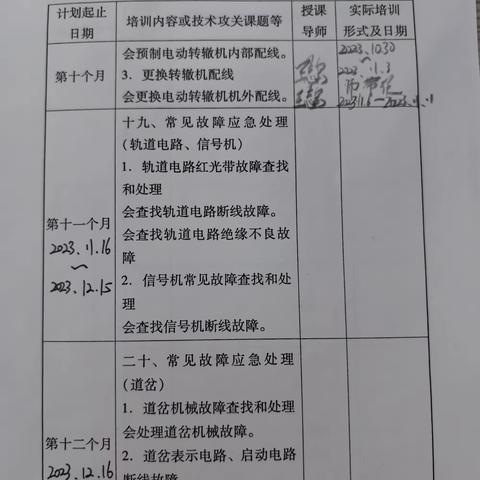 计划起止日期
培训内容或技术攻关课题等
授课导师
实际培训形式及日期
第十个月
会预制电动转辙机内部配线。
3．更换转辙机配线
会更换电动转辙机机外配线。
2023.10.30
～
2023.11.3
第十一个月
2023.11.16
～
2023.12.15
十九、常见故障应急处理
（轨道电路、信号机）
1．轨道电路红光带故障查找
和处理
会查找轨道电路断线故障。
会查找轨道电路绝缘不良故
障
2．信号机常见故障查找和处
理
会查找信号机断线故障。
第十二个月
2023.12.16
二十、常见故障应急处理
（道岔）
1．道岔机械故障查找和处理
会处理道岔机械故障。
2．道岔表示电路、启动电路
断线故障